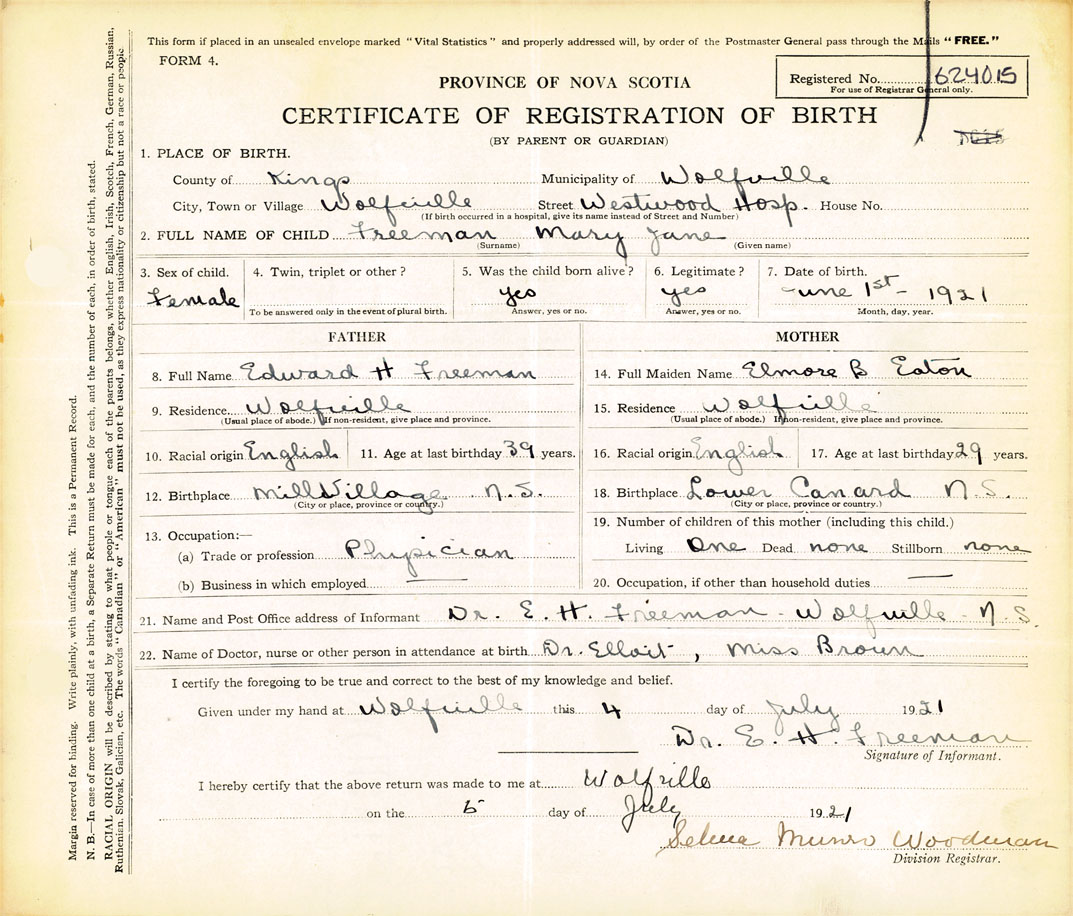 This form if placed in an unsealed envelope marked "Vital Statistics" and properly addressed will, by order of the Postmaster General pass through the Mails "FREE."
FORM 4.
Registered No. 624015
For use of Registrar General only.
PROVINCE OF NOVA SCOTIA
CERTIFICATE OF REGISTRATION OF BIRTH
(BY PARENT OR GUARDIAN)
1. PLACE OF BIRTH.
County of Kings Municipality of Wolfville
City, Town or Village Wolfville Street Westwood Hosp. House No.
(If birth occurred in a hospital, give its name instead of Street and Number)
2. FULL NAME OF CHILD Freeman Mary Jane
(Surname) (Given name)
3. Sex of child. 4. Twin, triplet or other? 5. Was the child born alive? 6. Legitimate? 7. Date of birth.
Female yes yes June 1st - 1921
To be answered only in the event of plural birth. Answer, yes or no. Answer, yes or no. Month, day, year.
FATHER
8. Full Name Edward H Freeman
9. Residence Wolfville
(Usual place of abode.) If non-resident, give place and province.
10. Racial origin English 11. Age at last birthday 39 years.
12. Birthplace Mill Village N.S.
(City or place, province or country.)
13. Occupation:—
(a) Trade or profession Physician
(b) Business in which employed —
MOTHER
14. Full Maiden Name Elmore B Eaton
15. Residence Wolfville
(Usual place of abode.) If non-resident, give place and province.
16. Racial origin English 17. Age at last birthday 29 years.
18. Birthplace Lower Canard N.S.
(City or place, province or country.)
19. Number of children of this mother (including this child.)
Living One Dead none Stillborn none
20. Occupation, if other than household duties —
21. Name and Post Office address of Informant Dr. E. H. Freeman - Wolfville N.S.
22. Name of Doctor, nurse or other person in attendance at birth Dr. Elloit, Miss Brown
I certify the foregoing to be true and correct to the best of my knowledge and belief.
Given under my hand at Wolfville this 4 day of July 1921
Dr. E. H. Freeman
Signature of Informant.
I hereby certify that the above return was made to me at Wolfville
on the 5 day of July 1921
Selena Munro Woodman
Division Registrar.
Margin reserved for binding. Write plainly, with unfading ink. This is a Permanent Record.
N. B.—In case of more than one child at a birth, a Separate Return must be made for each, and the number of each, in order of birth, stated.
RACIAL ORIGIN will be described by stating to what people or tongue each of the parents belongs, whether English, Irish, Scotch, French, German, Russian,
Ruthenian, Slovak, Galician, etc. The words "Canadian" or "American" must not be used, as they express nationality or citizenship but not a race or people